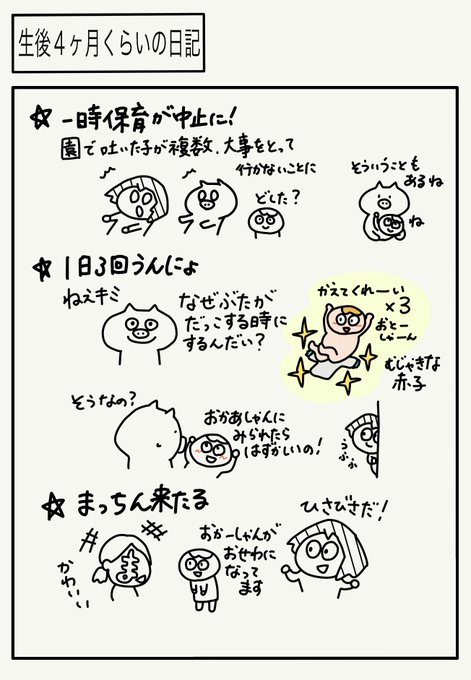 生後4ヶ月くらいの日記
☆ 一時保育が中止に!
園で吐いた子が複数、大事をとって
行かないことに
どした?
そういうことも
あるね
ね
☆ 1日3回うんにょ
ねえキミ
なぜぶたが
だっこする時に
するんだい?
かえてくれーい
×3
おとー
しゃーん
むじゃきな
赤子
そうなの?
おかあしゃんに
みられたら
はずかしいの!
うぷぷ
☆ まっちん来たる
かわいい
ま
おかーしゃんが
おせわに
なって
ます
ひさびさだ!